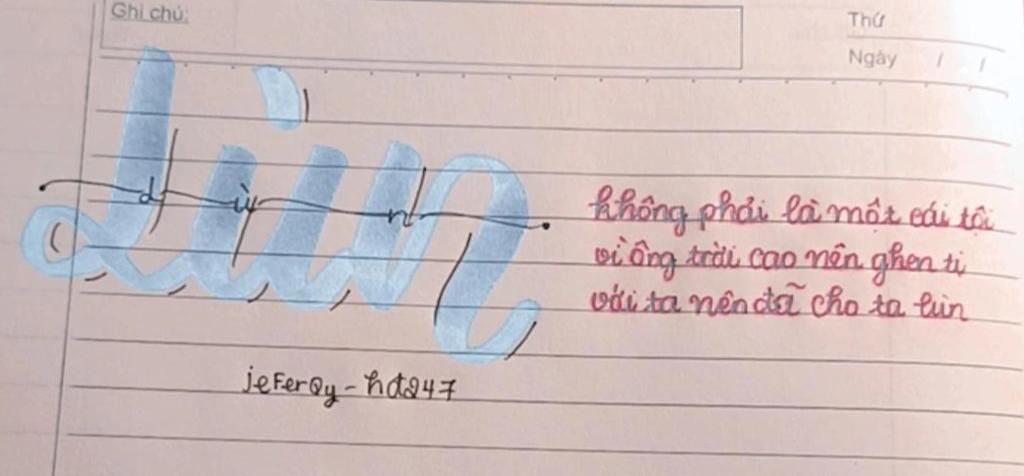 Ghi chú:
Thứ
Ngày / /
lùn
không phải là một cái tội
vì ông trời cao nên ghen tị
với ta nên đã cho ta lùn
jeFerQy - hđ247